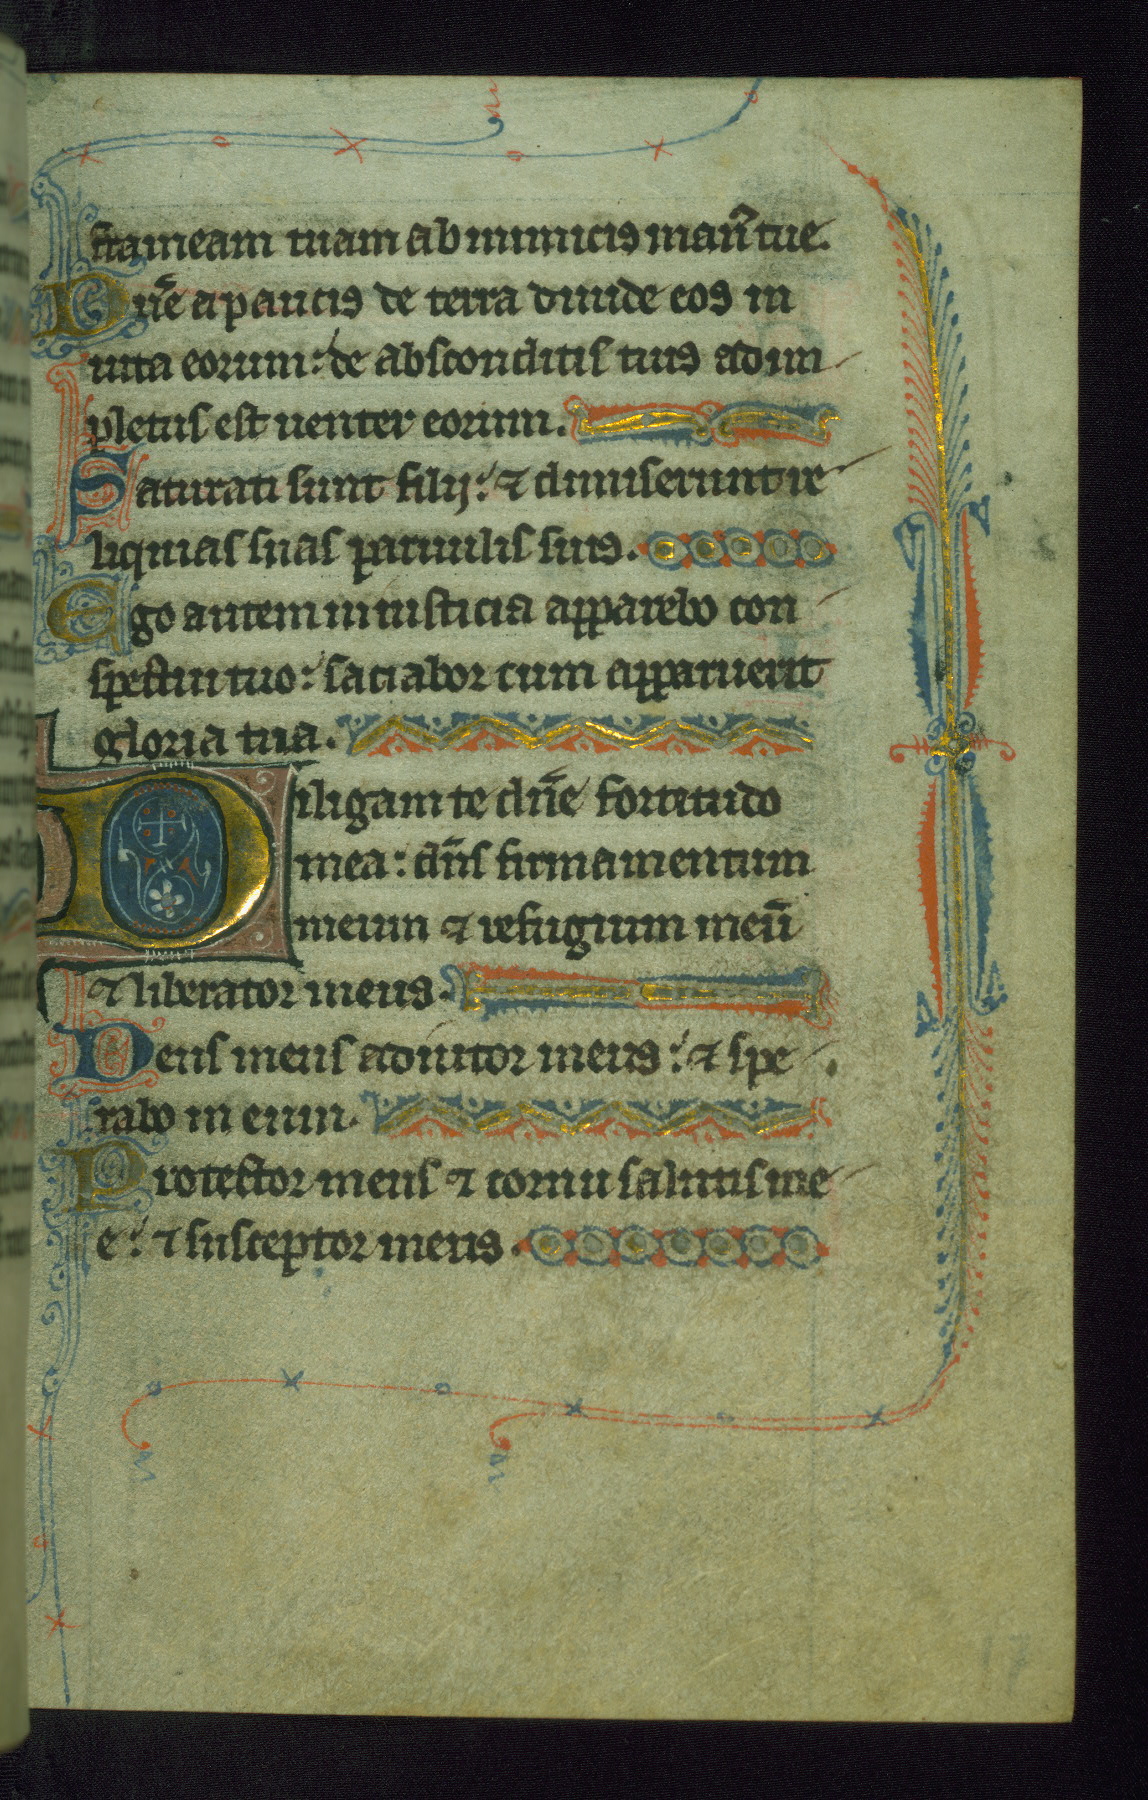 frameam tuam ab inimicis man̄ tue.
Dn̄e a paucis de terra diuide eos in
uita eorum: de absconditis tuis adim
pletus est uenter eorum.
Saturati sunt filij: ⁊ dimiserunt re
liquias suas paruulis suis.
Ego autem in iusticia apparebo con
spectui tuo: saciabor cum apparuerit
gloria tua.
Diligam te dn̄e fortitudo
mea: dn̄s firmamentum
meum ⁊ refugium meū
⁊ liberator meus.
Deus meus adiutor meus: ⁊ spe
rabo in eum.
Protector meus ⁊ cornu salutis me
e: ⁊ susceptor meus.